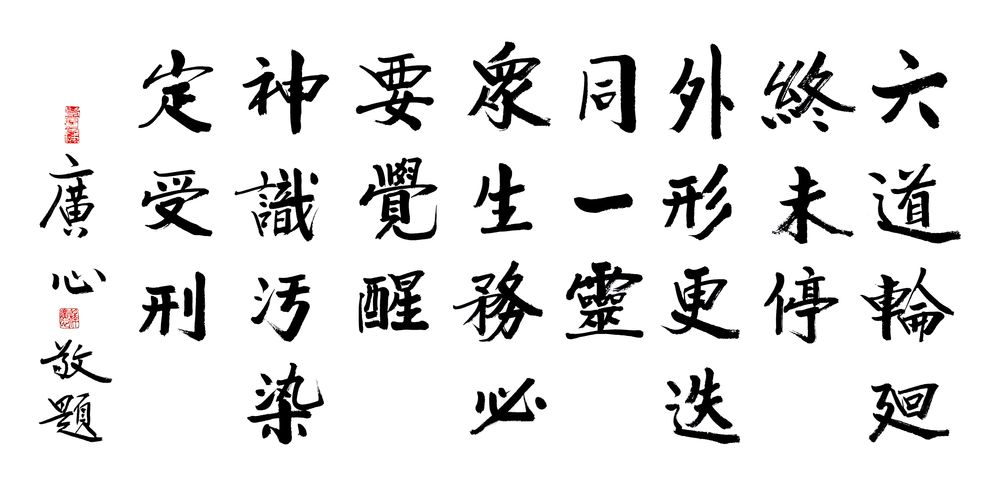 六道輪廻
終未停
外形更迭
同一靈
眾生務必
要覺醒
神識污染
定受刑
廣心敬題